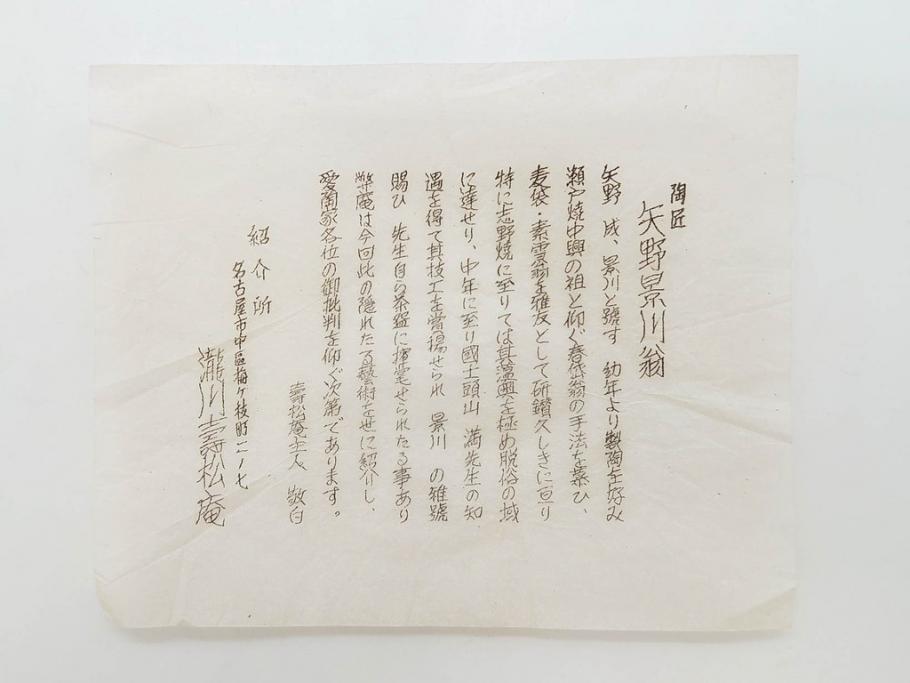 陶匠
矢野景川翁
矢野 成、景川と號す 幼年より製陶を好み
瀬戸焼中興の祖と仰ぐ春岱翁の手法を慕ひ、
麦袋・素雲翁を雅友として研鑽久しきに亘り
特に志野焼に至りては其薀奥を極め脱俗の域
に達せり、中年に至り國士頭山 満先生の知
遇を得て其技工を賞揚せられ 景川 の雅號
賜ひ 先生自ら茶盌に揮毫せられたる事あり
弊庵は今回此の隠れたる藝術を世に紹介し、
愛陶家各位の御批判を仰ぐ次第であります。
壽松庵主人 敬白
紹介所
名古屋市中區梅ヶ枝町二ノ七
瀧川壽松庵